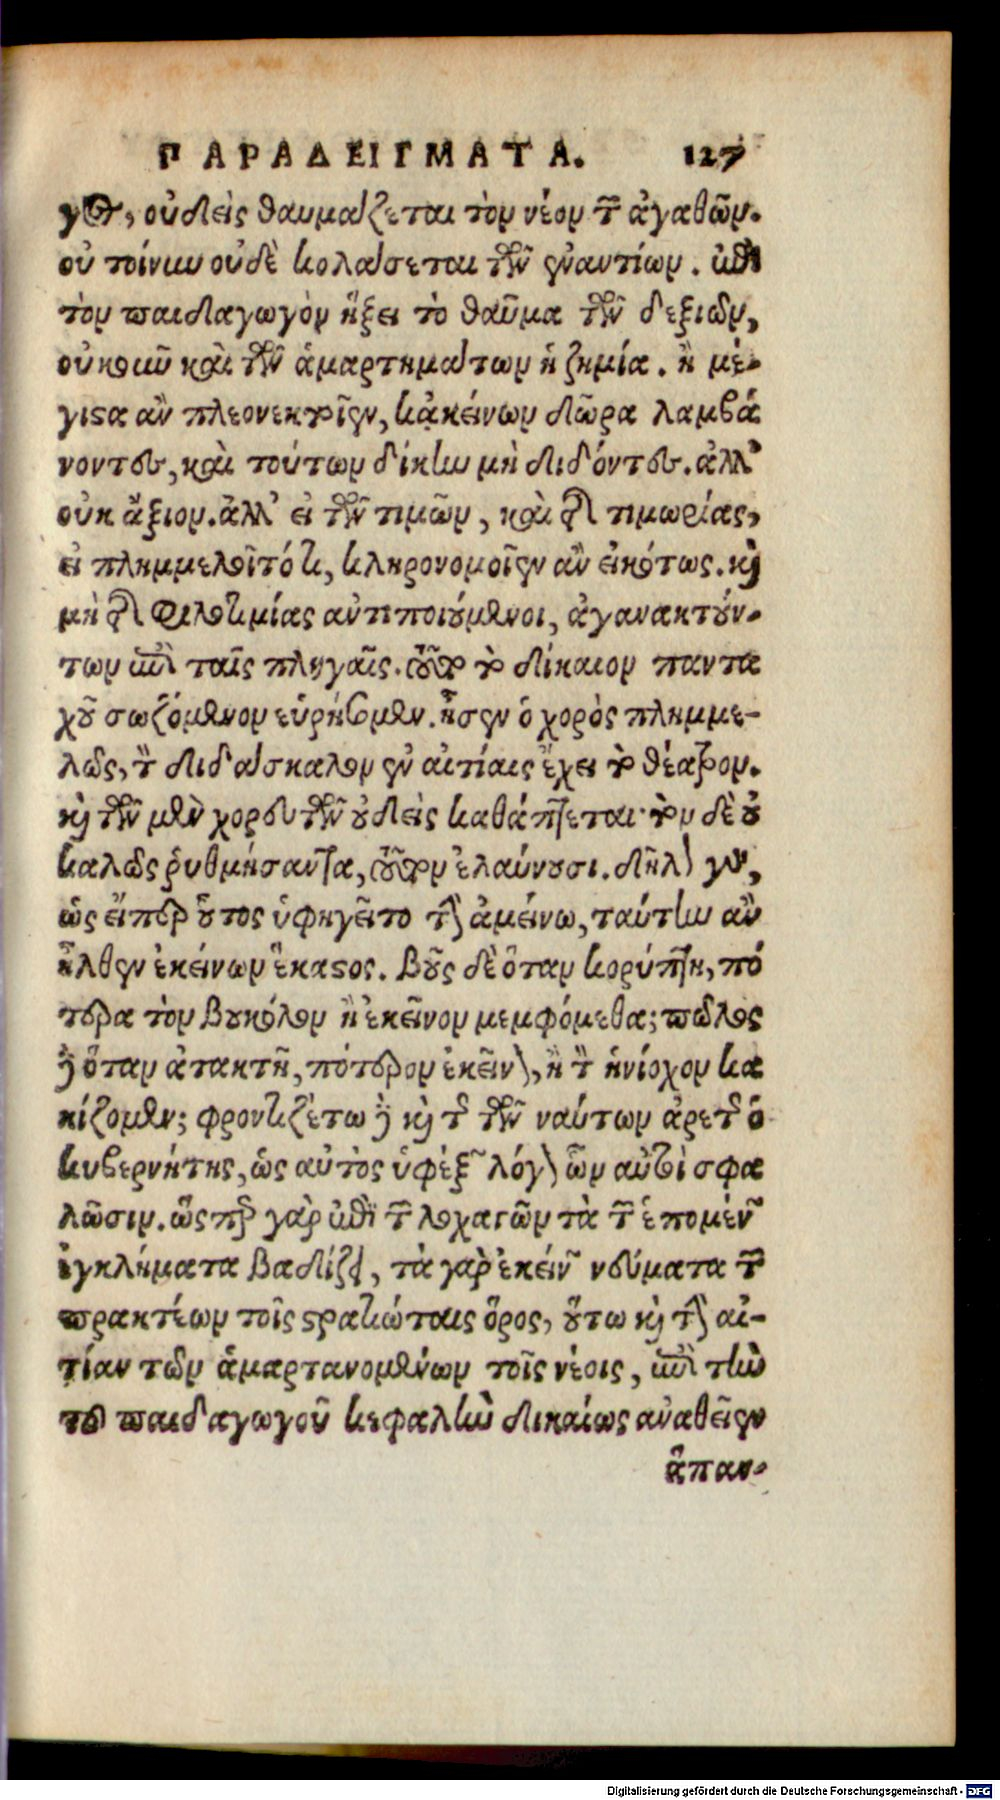 ΠΑΡΑΔΕΙΓΜΑΤΑ. 127
γος, οὐδεὶς θαυμάζεται τὸν νέον τῶν ἀγαθῶν.
οὐ τοίνυν οὐδὲ κολάσεται τῶν ἐναντίων. ἐπὶ
τὸν παιδαγωγὸν ἥξει τὸ θαῦμα τῶν δεξιῶν,
οὐκοῦν καὶ τῶν ἁμαρτημάτων ἡ ζημία. ἢ μέ-
γιστα ἂν πλεονεκτοῖεν, κἀκείνων δῶρα λαμβά
νοντες, καὶ τούτων δίκην μὴ διδόντες. ἀλλ'
οὐκ ἄξιον. ἀλλ' εἰ τῶν τιμῶν, καὶ τῆς τιμωρίας,
εἰ πλημμελοῖτό τι, κληρονομοῖεν ἂν εἰκότως. καὶ
μὴ τῆς φιλοτιμίας ἀντιποιούμενοι, ἀγανακτούν-
των ἐπὶ ταῖς πληγαῖς. τοῦτο τὸ δίκαιον παντα
χοῦ σωζόμενον εὑρήσομεν. ᾖσεν ὁ χορὸς πλημμε-
λῶς, τὸν διδάσκαλον ἐν αἰτίαις ἔχει τὸ θέατρον.
καὶ τῶν μὲν χορευτῶν οὐδεὶς καθάπτεται· τὸν δὲ οὐ
καλῶς ῥυθμήσαντα, τοῦτον ἐλαύνουσι. δῆλον γὰρ,
ὡς εἴπερ οὗτος ὑφηγεῖτο τὴν ἀμείνω, ταύτην ἂν
ἦλθεν ἐκείνων ἕκαστος. βοῦς δὲ ὅταν κορύπτῃ, πό
τερα τὸν βουκόλον ἢ ἐκεῖνον μεμφόμεθα; πῶλος
δὲ ὅταν ἀτακτῇ, πότερον ἐκεῖνον, ἢ τὸν ἡνίοχον κα
κίζομεν; φροντιζέτω δὲ καὶ τῆς τῶν ναύτων ἀρετῆς ὁ
κυβερνήτης, ὡς αὐτὸς ὑφέξων λόγον ὧν αὐτοὶ σφα
λῶσιν. ὥσπερ γὰρ ἐπὶ τῶν λοχαγῶν τὰ τῶν ἑπομένων
ἐγκλήματα βαδίζει, τὰ γὰρ ἐκείνων νεύματα τῶν
πρακτέων τοῖς στρατιώταις ὅρος, οὕτω καὶ τὴν αἰ-
τίαν τῶν ἁμαρτανομένων τοῖς νέοις, ἐπὶ τὴν
τοῦ παιδαγωγοῦ κεφαλὴν δικαίως ἀναθεῖεν
ἅπαν-
Digitalisierung gefördert durch die Deutsche Forschungsgemeinschaft - DFG